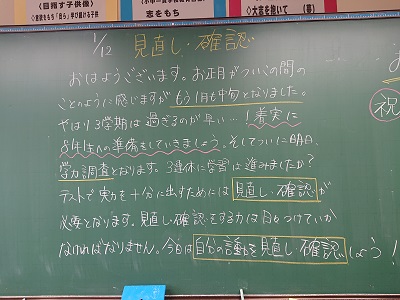 《目指す子供像》
志をもち
◇大志を抱いて (夢)
1/12 見直し・確認
おはようございます。お正月がついこの間の
ことのように感じますが もう1月も中旬となりました。
やはり3学期は過ぎるのが早い…!着実に
8年生への準備もしていきましょう。そしてついに明日、
学力調査となります。3連休に学習は進みましたか?
テストで実力を十分に出すためには見直し・確認が
必要となります。見直し・確認をする力は日々つけていか
なければなりません。今日は自分の言動を見直し・確認しましょう!
祝